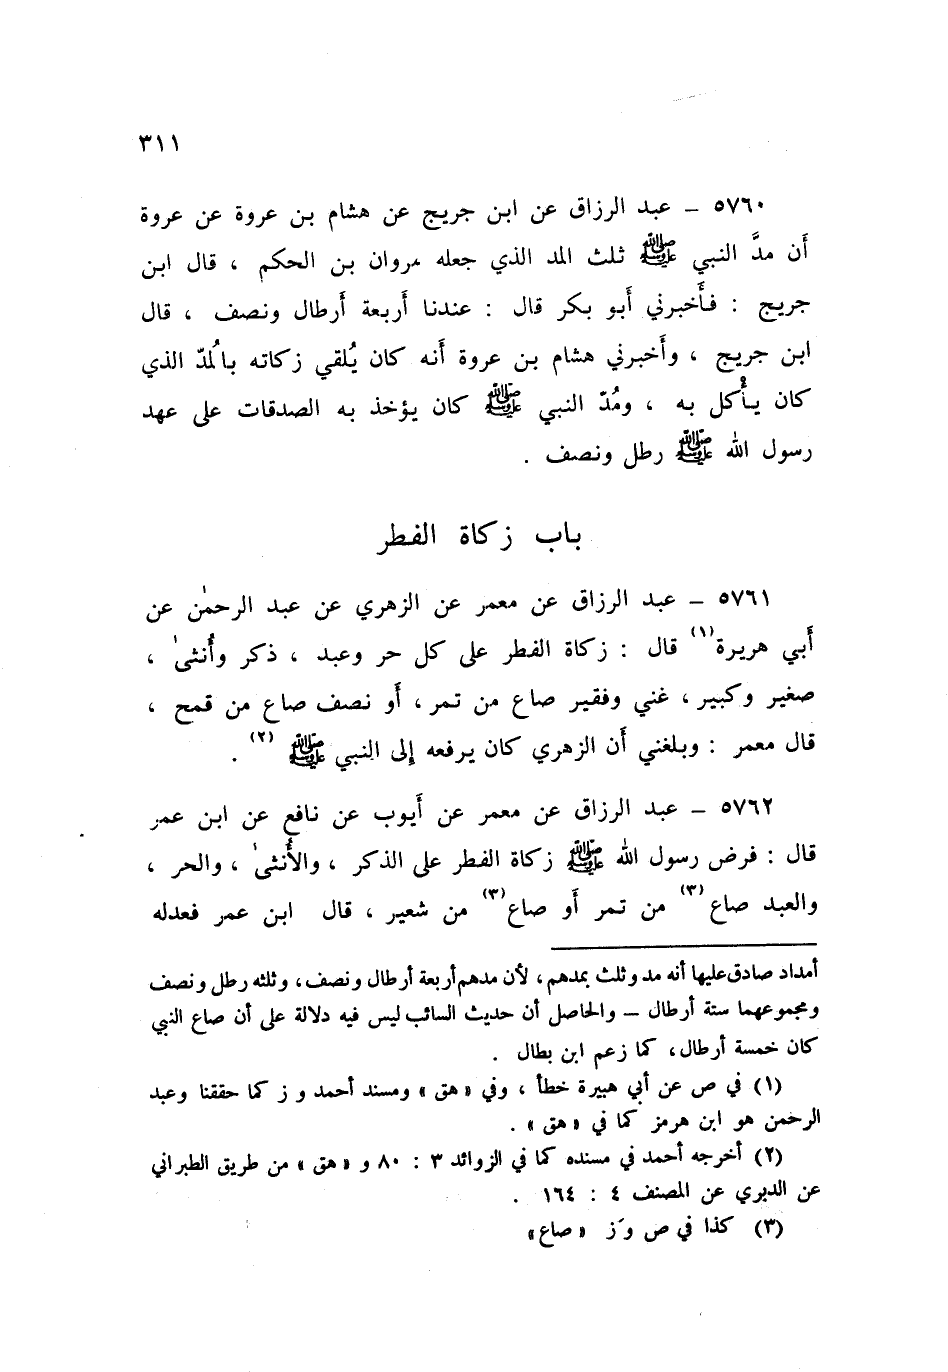 ٣١١
٥٧٦٠ – عبد الرزاق عن ابن جريج عن هشام بن عروة عن عروة
أَن مدَّ النبي ﷺ ثلث المد الذي جعله مروان بن الحكم ، قال ابن
جريج : فأَخبرني أَبو بكر قال : عندنا أَربعة أَرطال ونصف ، قال
ابن جريج ، وأَخبرني هشام بن عروة أَنه كان يُلقي زكاته بالمُدّ الذي
كان يأْكل به ، ومُدّ النبي ﷺ كان يؤخذ به الصدقات على عهد
رسول الله ﷺ رطل ونصف .
باب زكاة الفطر
٥٧٦١ – عبد الرزاق عن معمر عن الزهري عن عبد الرحمٰن عن
أَبي هريرة(١) قال : زكاة الفطر على كل حر وعبد ، ذكر وأُنثىٰ ،
صغير وكبير ، غني وفقير صاع من تمر ، أَو نصف صاع من قمح ،
قال معمر : وبلغني أَن الزهري كان يرفعه إِلى النبي ﷺ (٢) .
٥٧٦٢ – عبد الرزاق عن معمر عن أَيوب عن نافع عن ابن عمر
قال : فرض رسول الله ﷺ زكاة الفطر على الذكر ، والأُنثىٰ ، والحر ،
والعبد صاع(٣) من تمر أَو صاع(٣) من شعير ، قال ابن عمر فعدله
أمداد صادق عليها أنه مد وثلث بمدهم ، لأن مدهم أربعة أرطال ونصف ، وثلثه رطل ونصف
ومجموعهما ستة أرطال – والحاصل أن حديث السائب ليس فيه دلالة على أن صاع النبي
كان خمسة أرطال ، كما زعم ابن بطال .
(١) في ص عن أبي هبيرة خطأ ، وفي «هق» ومسند أحمد و ز كما حققنا وعبد
الرحمن هو ابن هرمز كما في «هق» .
(٢) أخرجه أحمد في مسنده كما في الزوائد ٣ : ٨٠ و «هق» من طريق الطبراني
عن الدبري عن المصنف ٤ : ١٦٤ .
(٣) كذا في ص و ز «صاع»